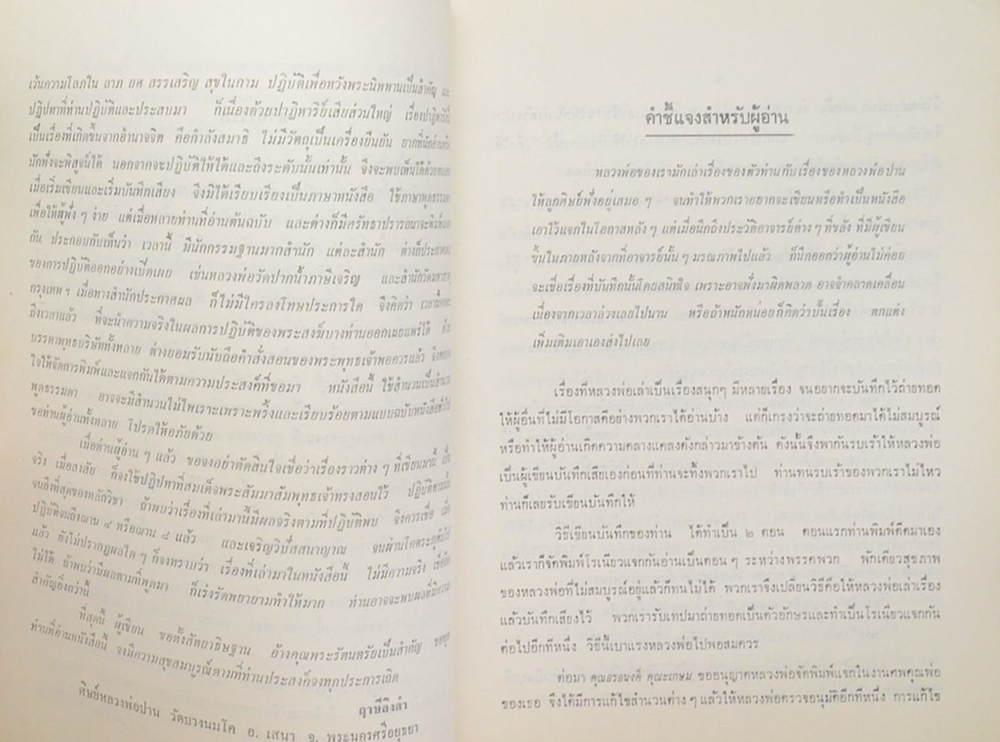 เว้นความโลภใน ลาภ ยศ สรรเสริญ สุขในกาม ปฏิบัติเพื่อหวังพระนิพพานเป็นสำคัญ และ
ปฏิปทาที่ท่านปฏิบัติและประสบมา ก็เนื่องด้วยปาฏิหาริย์เสียส่วนใหญ่ เรื่องปาฏิหาริย์
เป็นเรื่องที่เกิดขึ้นจากอำนาจจิต คือกำลังสมาธิ ไม่มีวัตถุเป็นเครื่องยืนยัน ยากที่นัก
นักพึ่งจะพิสูจน์ได้ นอกจากจะปฏิบัติให้ได้และถึงระดับนั้นเท่านั้น จึงจะพบเห็นได้ด้วย
เมื่อเริ่มเขียนและเริ่มบันทึกเสียง จึงมิได้เรียบเรียงเป็นภาษาหนังสือ ใช้ภาษาพูดธรรมดา
เพื่อให้ผู้ฟังๆ ง่าย แต่เมื่อหลายท่านที่อ่านต้นฉบับ และต่างก็มีศรัทธาปรารถนาจะพิมพ์
กัน ประกอบกับเห็นว่า เวลานี้ มีนักกรรมฐานมากสำนัก แต่ละสำนัก ต่างก็ประกาศผล
ของการปฏิบัติออกอย่างเปิดเผย เช่นหลวงพ่อวัดปากน้ำภาษีเจริญ และสำนักวัดมหาธาตุ
กรุงเทพฯ เมื่อทางสำนักประกาศผล ก็ไม่มีใครลงโทษประการใด จึงคิดว่า เวลานี้
ถึงเวลาแล้ว ที่จะนำความจริงในผลการปฏิบัติของพระสงฆ์บางท่านออกเผยแพร่ได้
บรรดาพุทธบริษัททั้งหลาย ต่างยอมรับนับถือคำสั่งสอนของพระพุทธเจ้าพอควรแล้ว จึง
ใจให้จัดการพิมพ์และแจกกันได้ตามความประสงค์ที่ขอมา หนังสือนี้ ใช้สำนวนเป็น
พูดธรรมดา อาจจะมีสำนวนไม่ไพเราะเพราะพริ้งและเรียบร้อยตามแบบฉบับหนังสือ
ขอท่านผู้อ่านทั้งหลาย โปรดให้อภัยด้วย
เมื่อท่านผู้อ่านๆ แล้ว ขอจงอย่าตัดสินใจเชื่อว่าเรื่องราวต่างๆ ที่เขียนมานี้ เป็น
จริง เมื่อสงสัย ก็จงใช้ปฏิปทาที่สมเด็จพระสัมมาสัมพุทธเจ้าทรงสอนไว้ ปฏิบัติ
จนถึงที่สุดของหลักวิชา ถ้าพบว่าเรื่องที่เล่ามานี้มีผลจริงตามที่ปฏิบัติพบ จึงควรเชื่อ
ปฏิบัติจนถึงฌาน ๔ หรือฌาน ๘ แล้ว และเจริญวิปัสสนาญาณ จนผ่านโคตรภูญาณ
แล้ว ยังไม่ปรากฏผลใดๆ ก็จงทราบว่า เรื่องที่เล่ามาในหนังสือนี้ ไม่มีความจริง
ไม่ได้ ถ้าพบว่ามีผลตามที่พูดมา ก็เร่งรัดพยายามทำให้มาก ท่านอาจจะพบผลที่มีความ
สำคัญยิ่งกว่านี้
ที่สุดนี้ ผู้เขียน ขอตั้งสัตยาธิษฐาน อ้างคุณพระรัตนตรัยเป็นสำคัญ ขอทุก
ท่านที่อ่านหนังสือนี้ จงมีความสุขสมบูรณ์ตามที่ท่านประสงค์จงทุกประการเถิด
ฤาษีลิงดำ
ศิษย์หลวงพ่อปาน วัดบางนมโค อ. เสนา จ. พระนครศรีอยุธยา
คำชี้แจงสำหรับผู้อ่าน
หลวงพ่อของเรามักเล่าเรื่องของตัวท่านกับเรื่องของหลวงพ่อปาน
ให้ลูกศิษย์ฟังอยู่เสมอ ๆ จนทำให้พวกเราอยากจะเขียนหรือทำเป็นหนังสือ
เอาไว้แจกในโอกาสหลัง ๆ แต่เมื่อนึกถึงประวัติอาจารย์ต่าง ๆ ที่ขลัง ที่มีผู้เขียน
ขึ้นในภายหลังจากที่อาจารย์นั้น ๆ มรณภาพไปแล้ว ก็นึกออกว่าผู้อ่านไม่ค่อย
จะเชื่อเรื่องที่บันทึกนั้นโดยสนิทใจ เพราะอาจฟังมาผิดพลาด อาจจำคลาดเคลื่อน
เนื่องจากเวลาล่วงเลยไปนาน หรือถ้าหนักหน่อยก็คิดว่าปั้นเรื่อง ตกแต่ง
เพิ่มเติมเอาเองส่งไปเลย
เรื่องที่หลวงพ่อเล่าเป็นเรื่องสนุกๆ มีหลายเรื่อง จนอยากจะบันทึกไว้ถ่ายทอด
ให้ผู้อื่นที่ไม่มีโอกาสดีอย่างพวกเราได้อ่านบ้าง แต่ก็เกรงว่าจะถ่ายทอดมาได้ไม่สมบูรณ์
หรือทำให้ผู้อ่านเกิดความคลางแคลงดังกล่าวมาข้างต้น ดังนั้นจึงพากันรบเร้าให้หลวงพ่อ
เป็นผู้เขียนบันทึกเสียเองก่อนที่ท่านจะทิ้งพวกเราไป ท่านทนรบเร้าของพวกเราไม่ไหว
ท่านก็เลยรับเขียนบันทึกให้
วิธีเขียนบันทึกของท่าน ได้ทำเป็น ๒ ตอน ตอนแรกท่านพิมพ์ดีดมาเอง
แล้วเราก็จัดพิมพ์โรเนียวแจกกันอ่านเป็นตอนๆ ระหว่างพรรคพวก พักเดียวสุขภาพ
ของหลวงพ่อที่ไม่สมบูรณ์อยู่แล้วก็ทนไม่ได้ พวกเราจึงเปลี่ยนวิธีคือให้หลวงพ่อเล่าเรื่อง
แล้วบันทึกเสียงไว้ พวกเรารับเทปมาถ่ายทอดเป็นตัวอักษรและทำเป็นโรเนียวแจกกัน
ต่อไปอีกทีหนึ่ง วิธีนี้เบาแรงหลวงพ่อไปพอสมควร
ต่อมา คุณอรอนงค์ คุณะเกษม ขออนุญาตหลวงพ่อจัดพิมพ์แจกในงานศพคุณพ่อ
ของเธอ จึงได้มีการแก้ไขสำนวนต่าง ๆ แล้วให้หลวงพ่อตรวจอนุมัติอีกทีหนึ่ง การแก้ไข